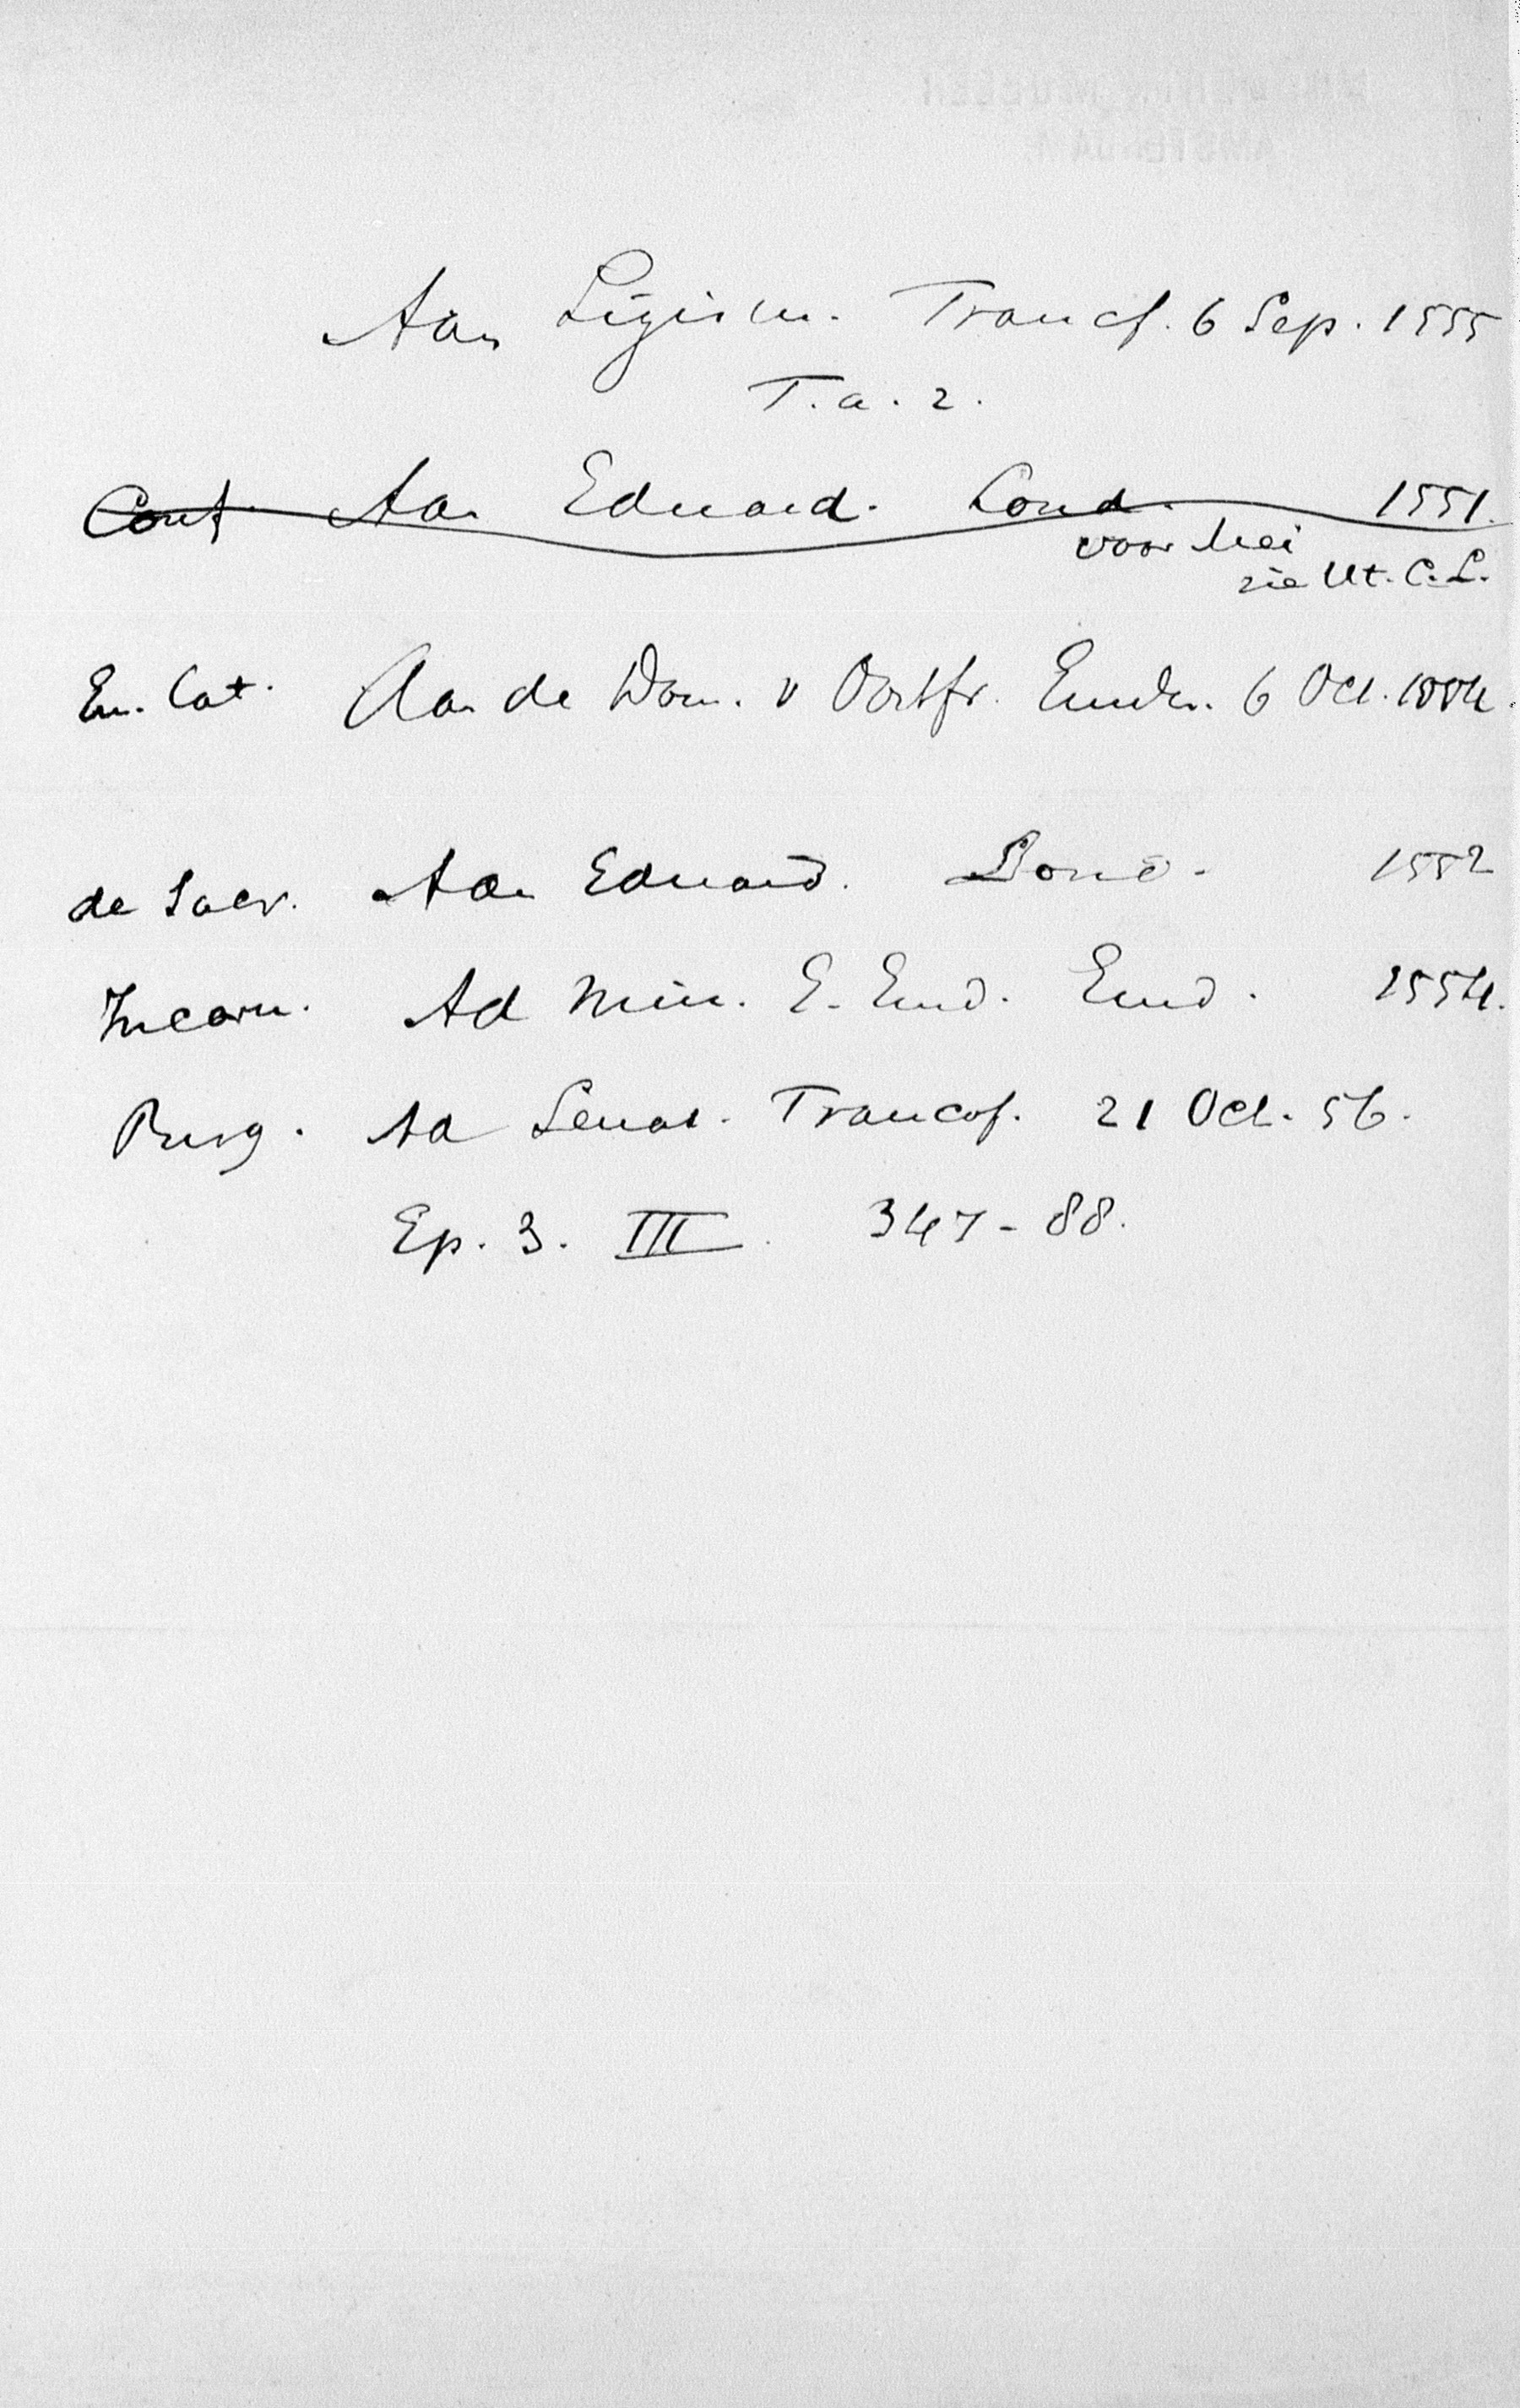 Aan Sigism. Francf. 6 Sep. 1555
T. a. 2.
Cont. Aan Eduard. Lond. 1551.
voor Mei
zie Ut. C. L.
Em. Cat. Aan de Dom. v Oostfr. Emden. 6 Oct. 1554.
de Sacr. Aan Eduard. Lond. 1552
Incarn. Ad Min. E. Emd. Emd. 1554.
Purg. Ad Senat. Francof. 21 Oct. 56.
Ep. 3. III. 347-88.